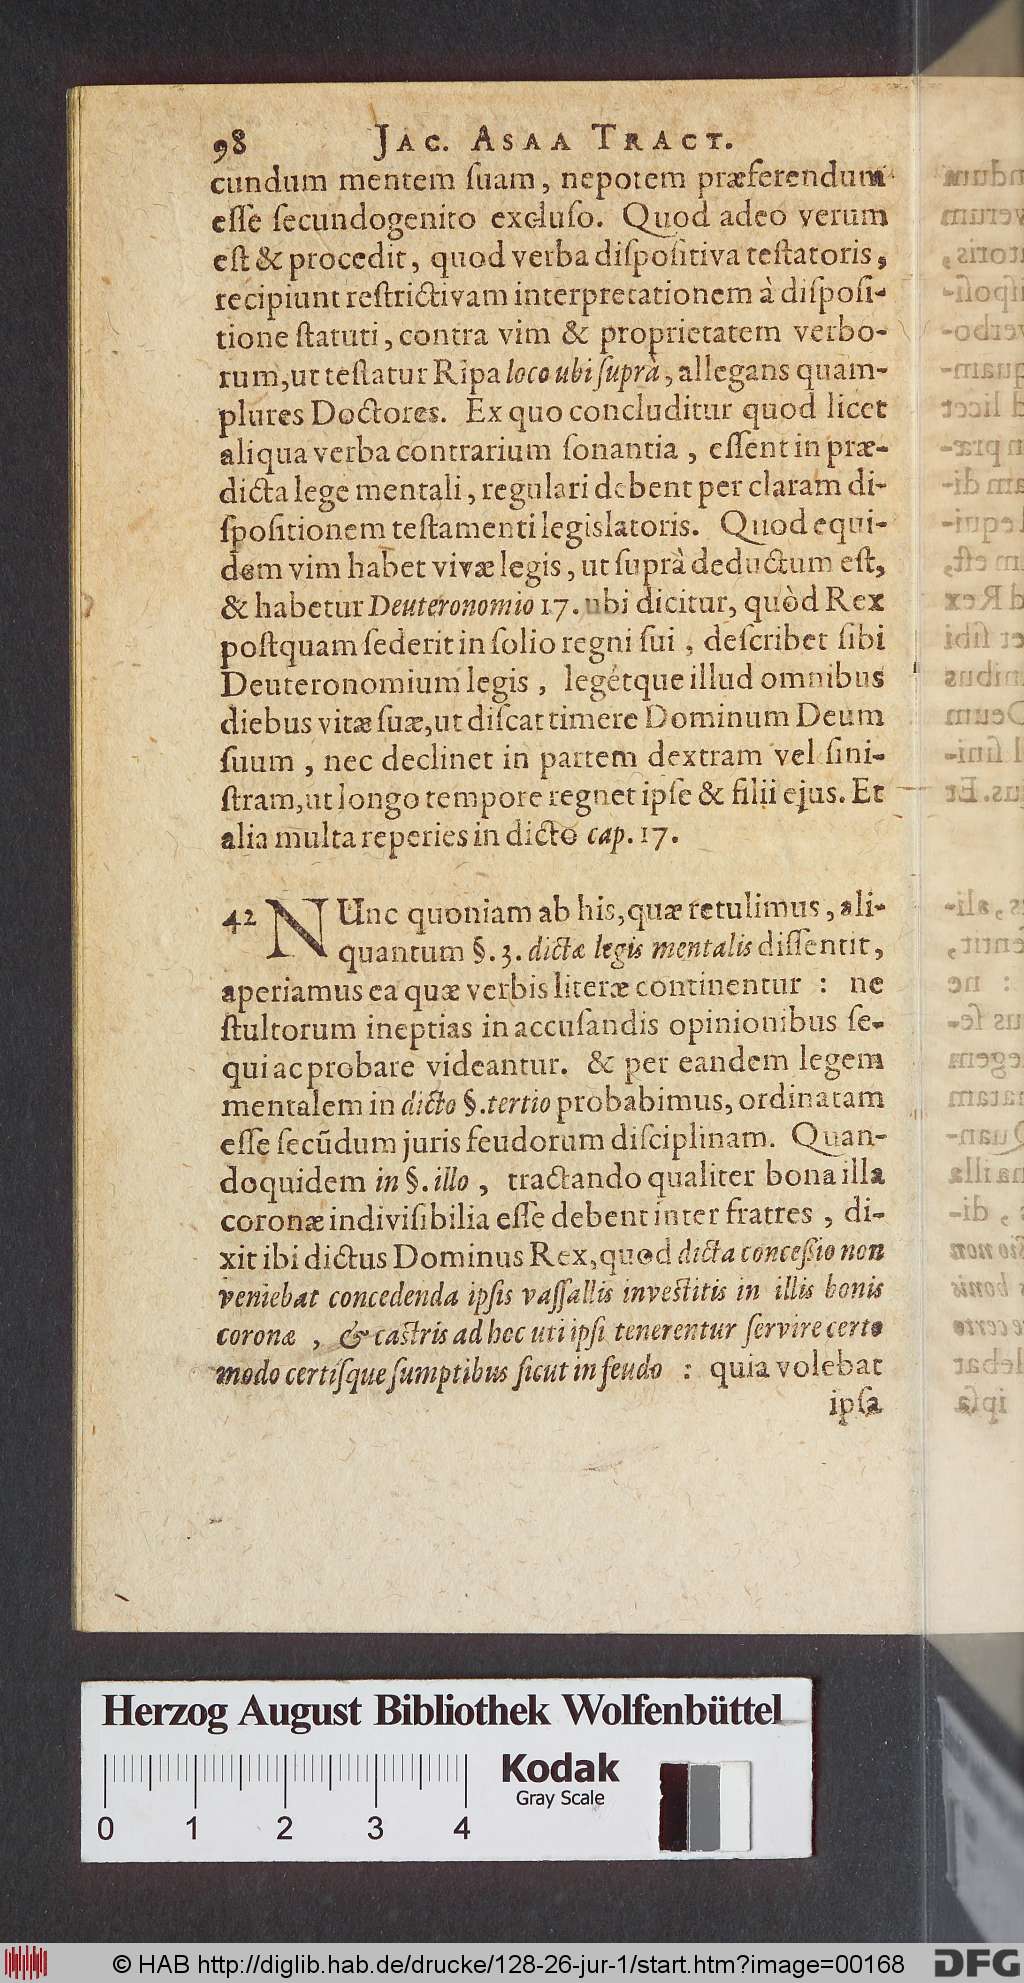 98 JAC. ASAA TRACT.
cundum mentem ſuam, nepotem præferendum
eſſe ſecundogenito excluſo. Quod adeo verum
eſt & procedit, quod verba diſpoſitiva teſtatoris,
recipiunt reſtrictivam interpretationem à diſpoſi-
tione ſtatuti, contra vim & proprietatem verbo-
rum, ut teſtatur Ripa loco ubi ſuprà, allegans quam-
plures Doctores. Ex quo concluditur quod licet
aliqua verba contrarium ſonantia, eſſent in præ-
dicta lege mentali, regulari debent per claram di-
ſpoſitionem teſtamenti legislatoris. Quod equi-
dem vim habet vivæ legis, ut ſuprà deductum eſt,
& habetur Deuteronomio 17. ubi dicitur, quòd Rex
poſtquam ſederit in ſolio regni ſui, deſcribet ſibi
Deuteronomium legis, legétque illud omnibus
diebus vitæ ſuæ, ut diſcat timere Dominum Deum
ſuum, nec declinet in partem dextram vel ſini-
ſtram, ut longo tempore regnet ipſe & filii ejus. Et
alia multa reperies in dicto cap. 17.
42 NUnc quoniam ab his, quæ retulimus, ali-
quantum §. 3. dictæ legis mentalis diſſentit,
aperiamus ea quæ verbis literæ continentur : ne
ſtultorum ineptias in accuſandis opinionibus ſe-
qui ac probare videantur. & per eandem legem
mentalem in dicto §. tertio probabimus, ordinatam
eſſe ſecũdum juris feudorum diſciplinam. Quan-
doquidem in §. illo, tractando qualiter bona illa
coronæ indiviſibilia eſſe debent inter fratres, di-
xit ibi dictus Dominus Rex, quod dicta conceßio non
veniebat concedenda ipſis vaſſallis inveſtitis in illis bonis
coronæ, & caſtris ad hoc uti ipſi tenerentur ſervire certo
modo certiſque ſumptibus ſicut in feudo : quia volebat
ipſa
Herzog August Bibliothek Wolfenbüttel
Kodak
Gray Scale
0 1 2 3 4
© HAB http://diglib.hab.de/drucke/128-26-jur-1/start.htm?image=00168
DFG